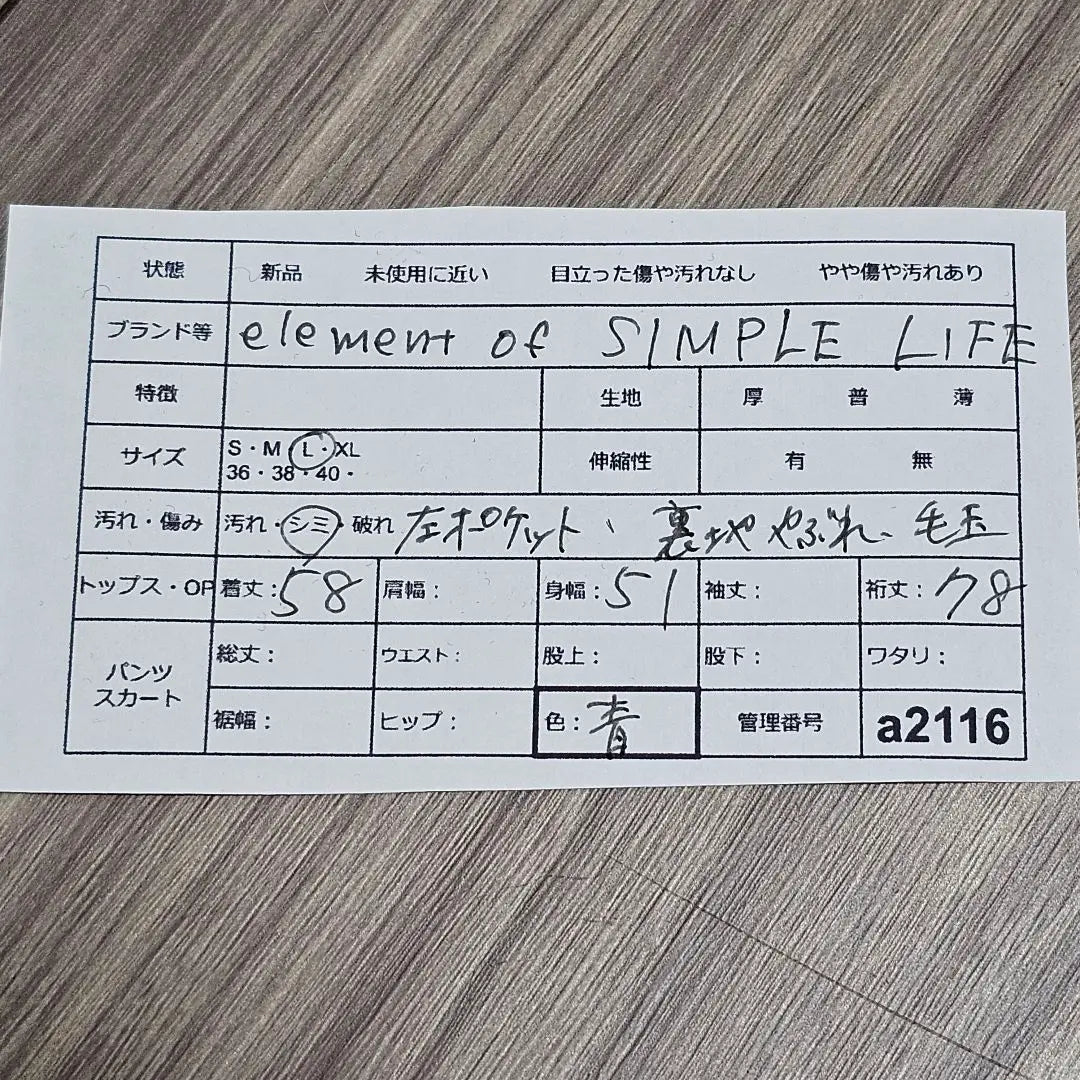 状態 新品 未使用に近い 目立った傷や汚れなし やや傷や汚れあり
ブランド等 element of SIMPLE LIFE
特徴 生地 厚 普 薄
サイズ S・M・L・XL 伸縮性 有 無
36・38・40・
汚れ・傷み 汚れ・シミ・破れ 左ポケット、裏地やぶれ、毛玉
トップス・OP 着丈:58 肩幅: 身幅:51 袖丈: 裄丈:78
パンツ スカート 総丈: ウエスト: 股上: 股下: ワタリ:
裾幅: ヒップ: 色:青 管理番号 a2116